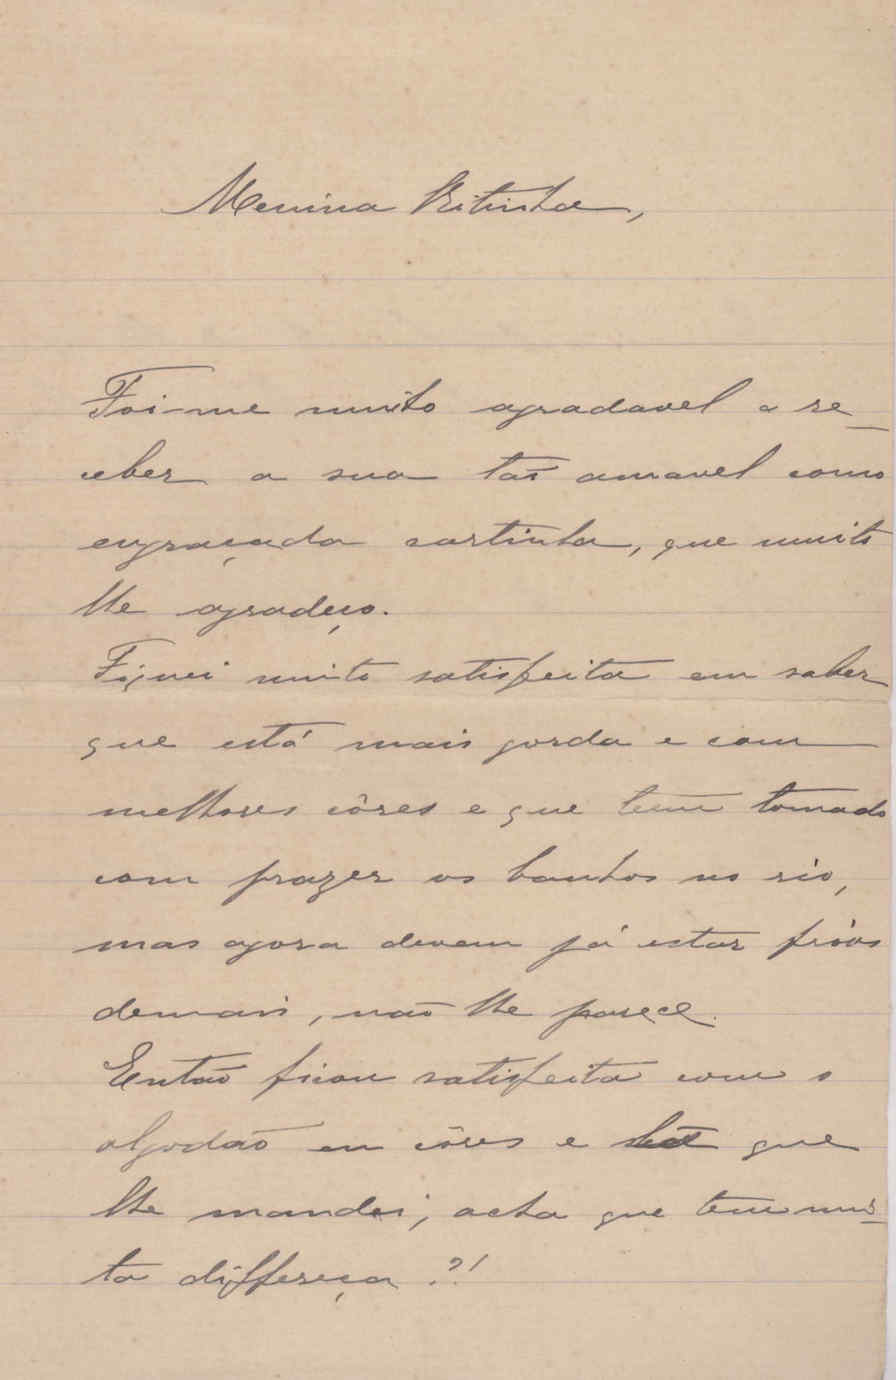 Menina Ritinha,
Foi-me muito agradavel o re-
ceber a sua tão amavel como
engraçada cartinha, que muito
lhe agradeço.
Fiquei muito satisfeita em saber
que está mais gorda e com
melhores côres e que tem tomado
com prazer os banhos no rio,
mas agora devem já estar frios
demais, não lhe parece.
Então ficou satisfeita com o
algodão em côres e que
lhe mandei; acha que tem mui-
ta differeça?!